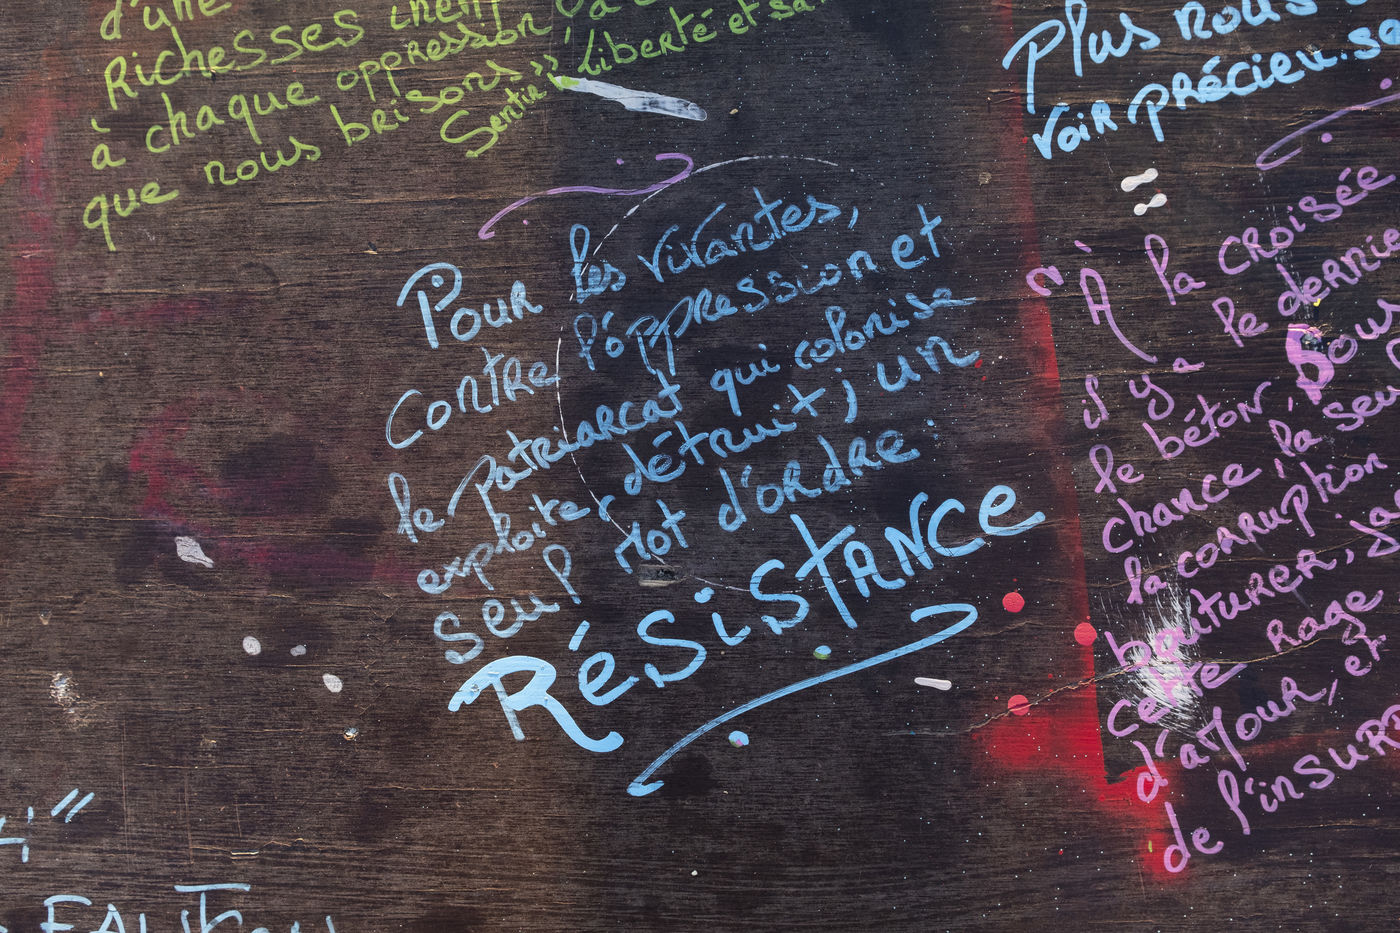 d'une
Richesses
à chaque oppression
que nous brisons »
Sentir
liberté et sa
Pour les vivantes,
contre l'oppression et
le patriarcat qui colonise
exploite, détruit ; un
seul mot d'ordre :
RÉSISTANCE
Plus nous
voir précieu.se
" À la croisée
il y a le dernie
le béton, sous
chance, la seu
la corruption
bouturer, ja
cette rage
d'amour, et
de l'insur